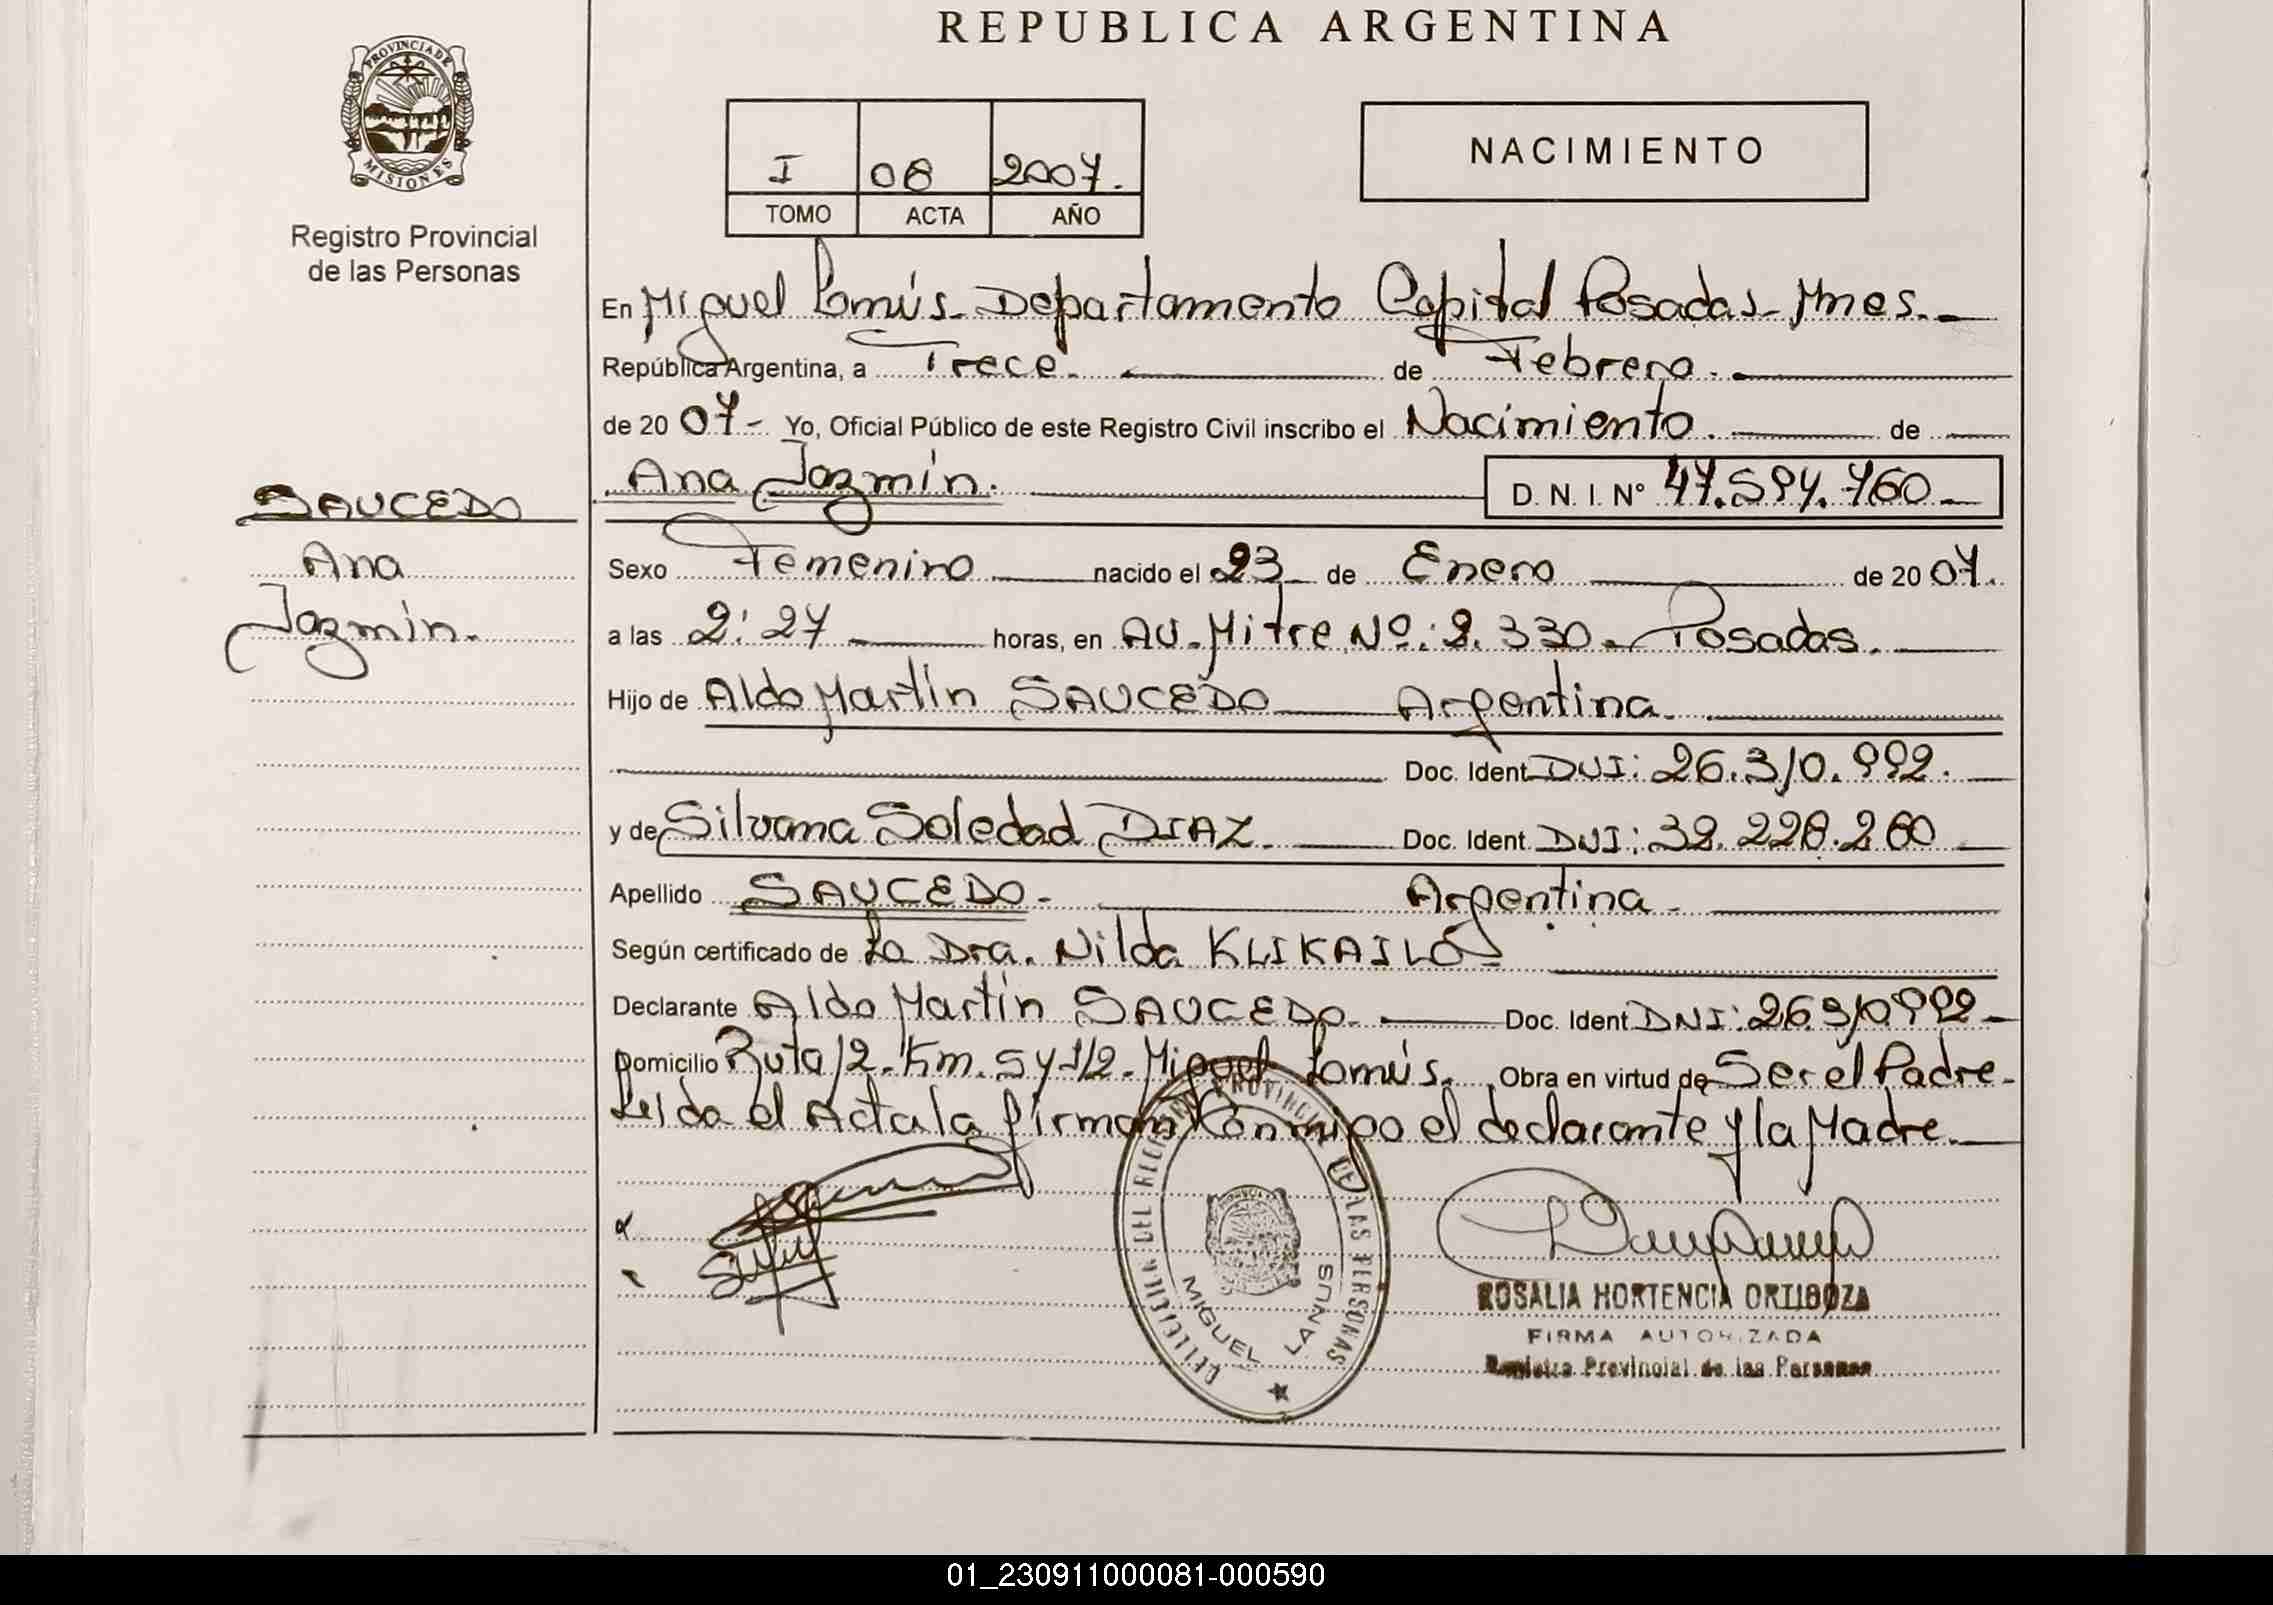 REPUBLICA ARGENTINA
PROVINCIA DE
MISIONES
Registro Provincial
de las Personas
I 08 2007.
TOMO ACTA AÑO
NACIMIENTO
En Miguel Lanús - Departamento Capital Posadas - Mnes. -
República Argentina, a Trece. de Febrero.
de 20 07 - Yo, Oficial Público de este Registro Civil inscribo el Nacimiento. de
Ana Jazmín. D. N. I. N° 47.594.760
SAUCEDO
Ana
Jazmín.
Sexo Femenino nacido el 23 de Enero de 20 07.
a las 2:27 horas, en AV. Mitre Nº: 2.330 - Posadas.
Hijo de Aldo Martín SAUCEDO Argentina.
Doc. Ident. DNI: 26.310.992.
y de Silvana Soledad DIAZ. Doc. Ident. DNI: 32.228.260
Apellido SAUCEDO. Argentina.
Según certificado de La Dra. Nilda KLIKAILO
Declarante Aldo Martín SAUCEDO. Doc. Ident DNI: 26.310.992
Domicilio Ruta 12. Km. 5 y 1/2 - Miguel Lanús. Obra en virtud de Ser el Padre.
Leído el Acta la firman Conmigo el declarante y la Madre.
DEL REGISTRO PROVINCIAL DE LAS PERSONAS
MIGUEL LANUS
ROSALIA HORTENCIA ORTIGOZA
FIRMA AUTORIZADA
Registro Provincial de las Personas
01_230911000081-000590